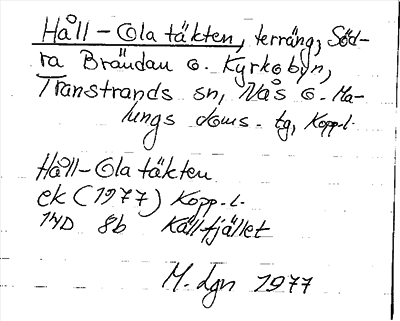 Håll-Ola täkten, terräng, Söd-
ra Brändan o. Kyrkobyn,
Transtrands sn, Nås o. Ma-
lungs doms. tg, Kopp.l.
Håll-Ola täkten
ek (1977) Kopp.l.
14D 8b Källfjället
M. Lgn 1977